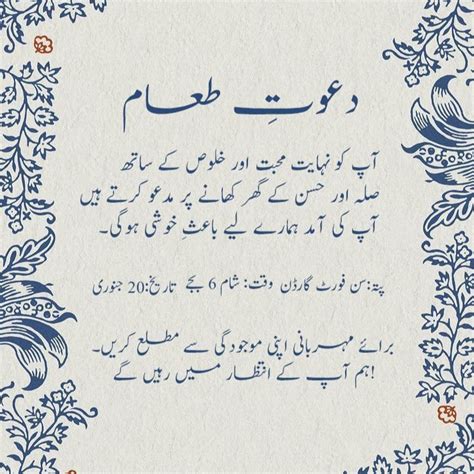 دعوتِ طعام
آپ کو نہایت محبت اور خلوص کے ساتھ
صلہ اور حسن کے گھر کھانے پر مدعو کرتے ہیں
آپ کی آمد ہمارے لیے باعثِ خوشی ہوگی۔
پتہ:سن فورٹ گارڈن وقت: شام 6 بجے تاریخ:20 جنوری
برائے مہربانی اپنی موجودگی سے مطلع کریں۔
!ہم آپ کے انتظار میں رہیں گے